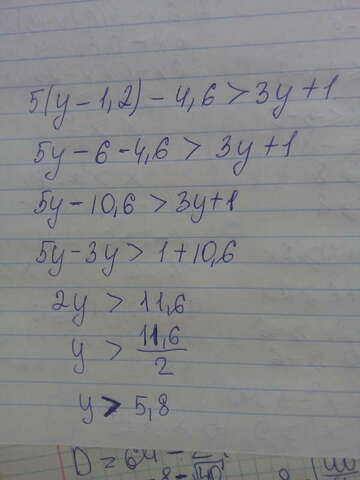 5(y-1,2)-4,6>3y+1
5y-6-4,6>3y+1
5y-10,6>3y+1
5y-3y>1+10,6
2y>11,6
y>11,6/2
y>5,8
D=64-